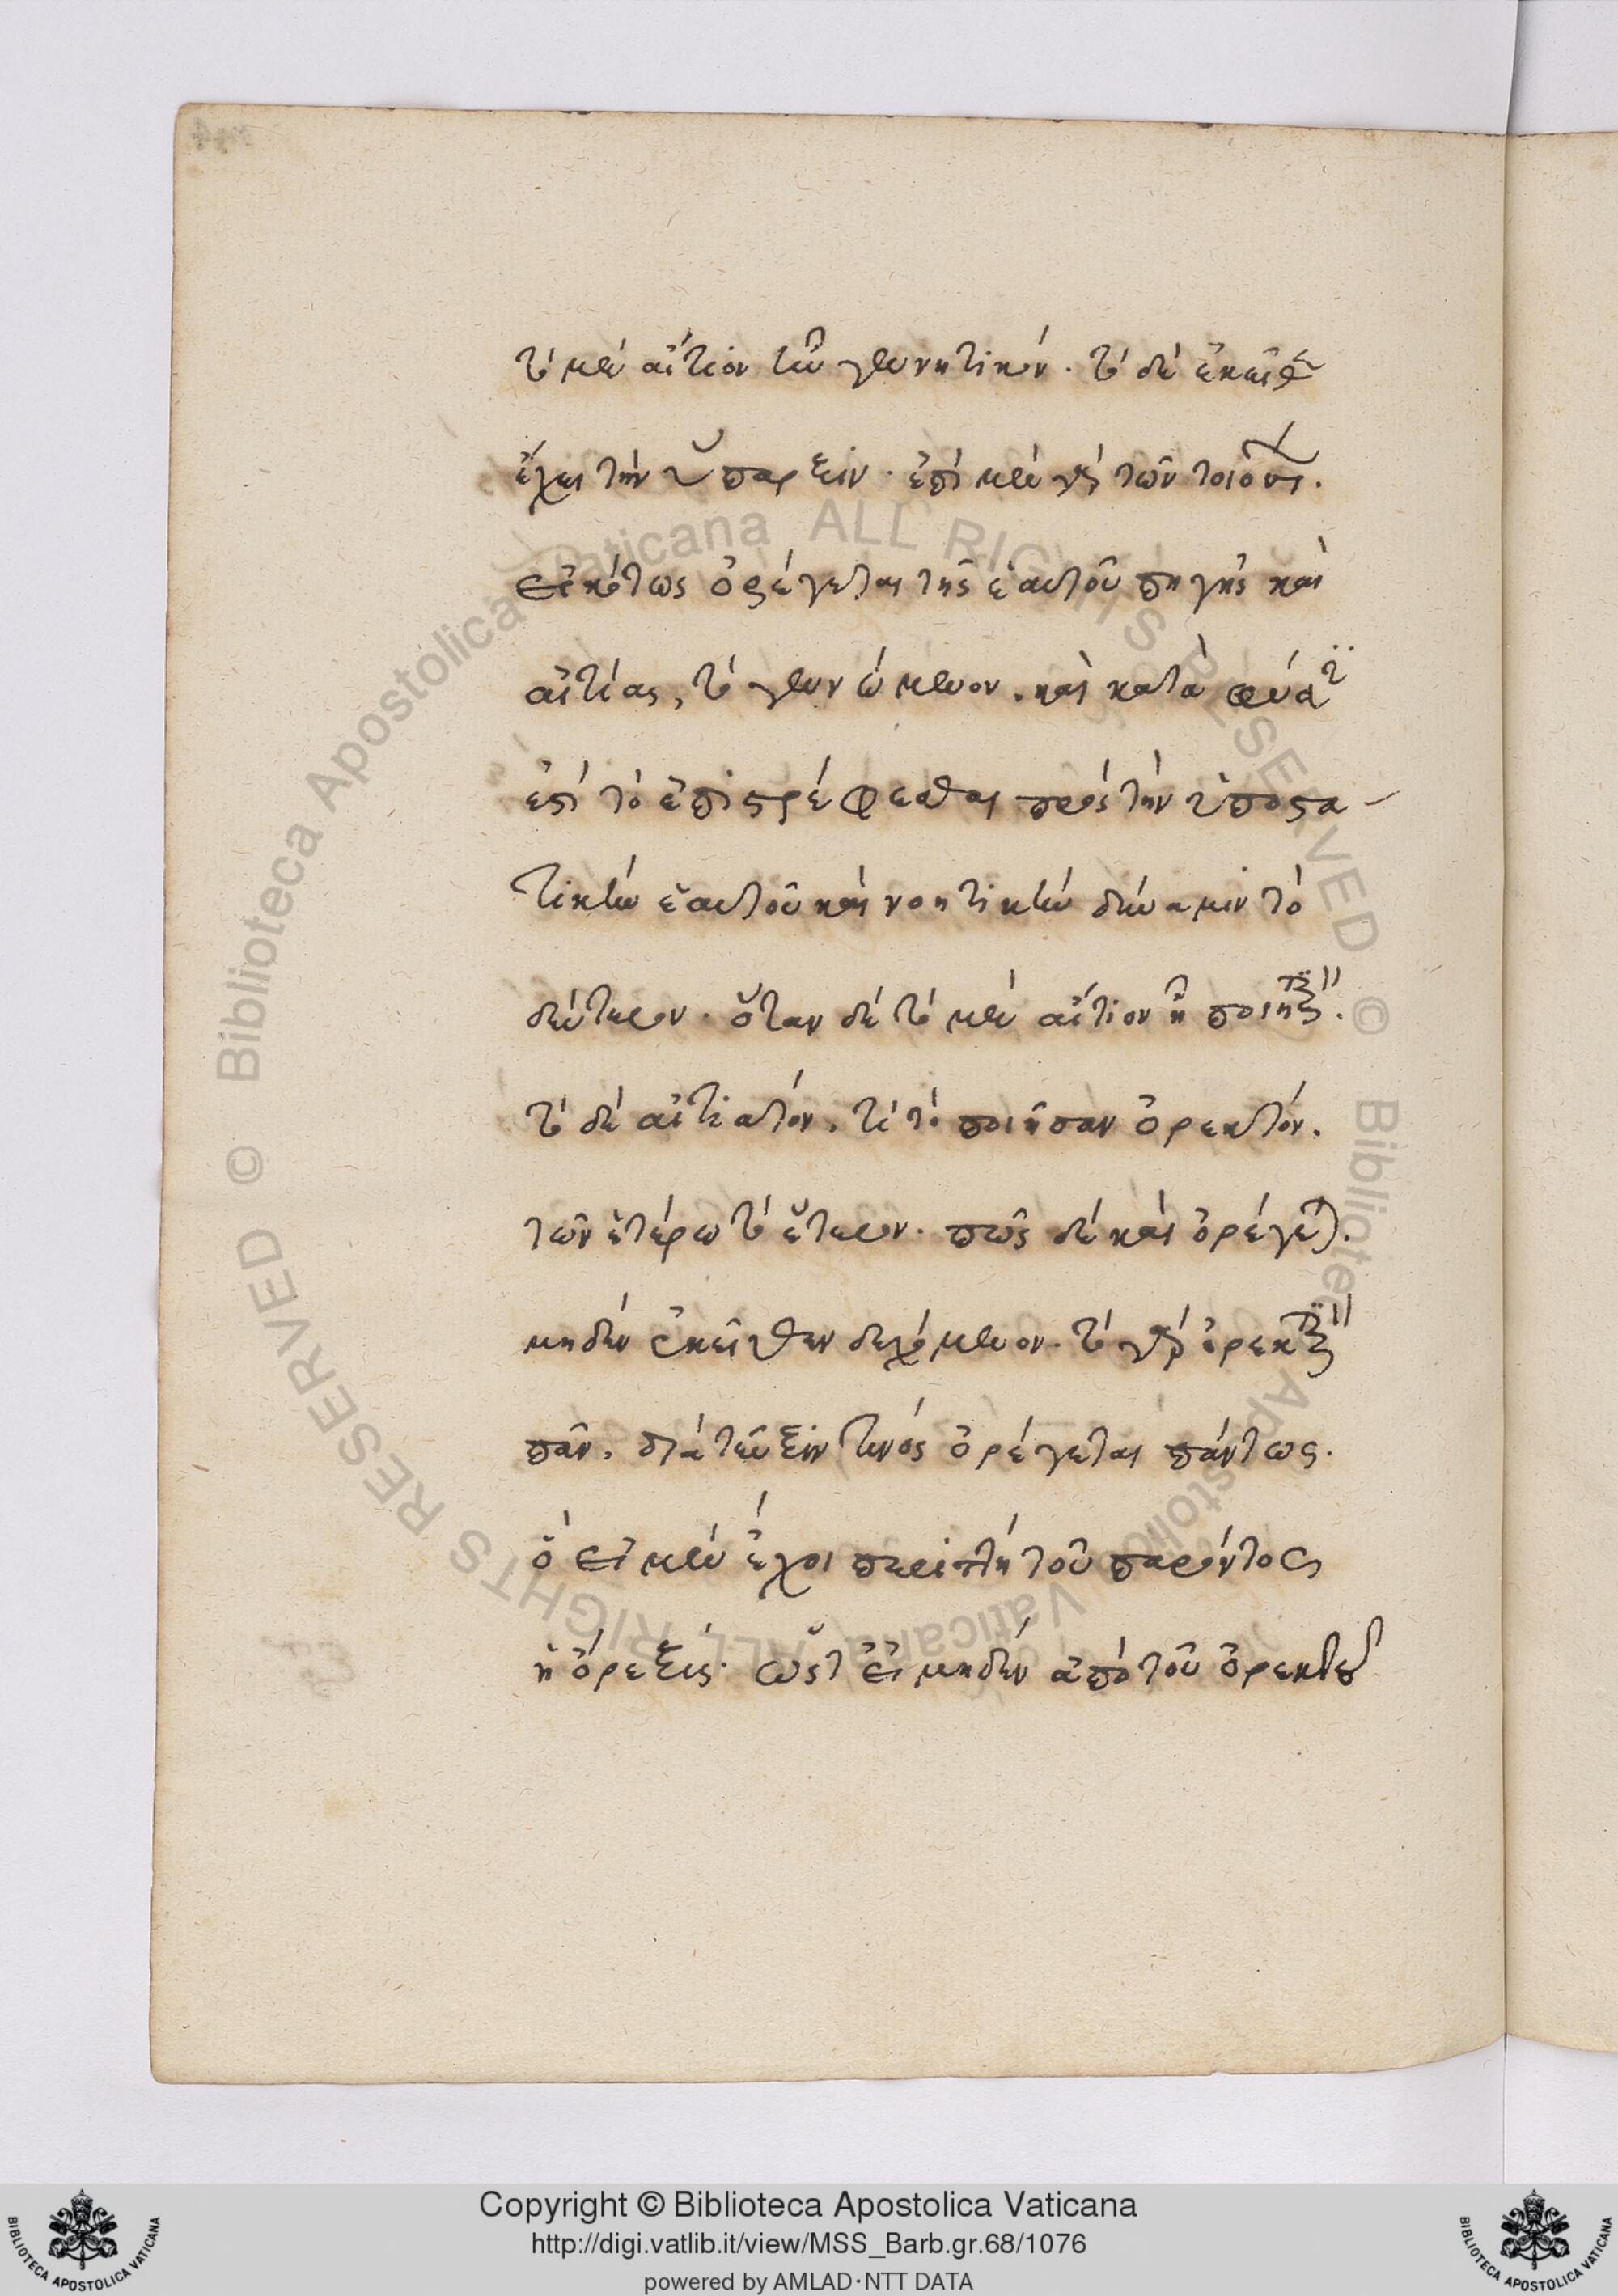 τὸ μὲν αἴτιον ἦν γεννητικόν. τὸ δὲ ἐκεῖθεν
ἔχει τὴν ὕπαρξιν. ἐπὶ μὲν γὰρ τῶν τοιούτων.
εἰκότως ὀρέγεται τῆς ἑαυτοῦ πηγῆς καὶ
αἰτίας, τὸ γεννώμενον. καὶ κατὰ φύσιν
ἐστὶ τὸ ἐπιστρέφεσθαι πρὸς τὴν ὑποστα-
τικὴν ἑαυτοῦ καὶ νοητικὴν δύναμιν τὸ
δεύτερον. ὅταν δὲ τὸ μὲν αἴτιον ᾖ ποιητικόν.
τὸ δὲ αἰτιατόν, τί τὸ ποιῆσαν ὀρεκτόν.
τῶν ἑτέρω τὸ ἕτερον. πῶς δὲ καὶ ὀρέγεται.
μηδὲν ἐκεῖθεν δεχόμενον. τὸ γὰρ ὀρεκτικὸν
πᾶν, διὰ τεῦξιν τινὸς ὀρέγεται πάντως.
ὃ εἰ μὲν ἔχοι περιττὴ τοῦ παρόντος
ἡ ὄρεξις. ὥστ εἰ μηδὲν ἀπὸ τοῦ ὀρεκτοῦ
Biblioteca Apostolica Vaticana ALL RIGHTS RESERVED ©
Copyright © Biblioteca Apostolica Vaticana
http://digi.vatlib.it/view/MSS_Barb.gr.68/1076
powered by AMLAD·NTT DATA
BIBLIOTECA APOSTOLICA VATICANA
BIBLIOTECA APOSTOLICA VATICANA